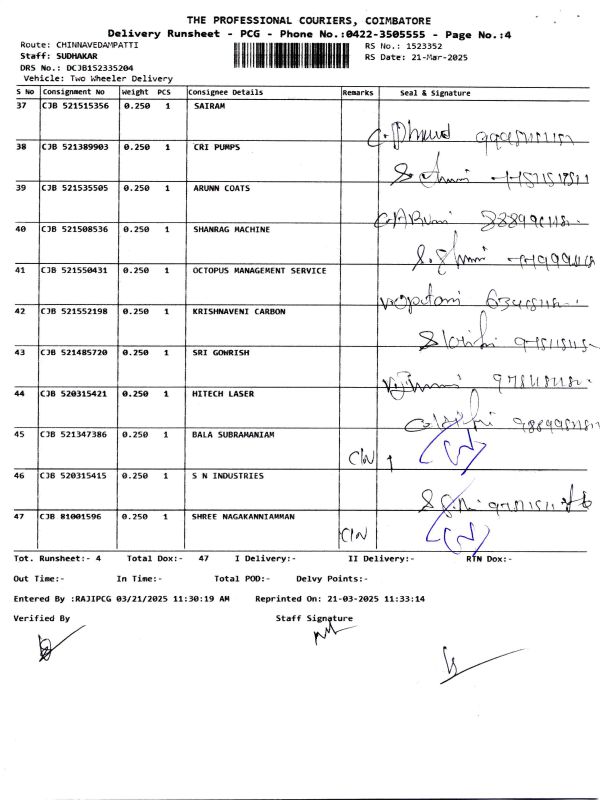 THE PROFESSIONAL COURIERS, COIMBATORE
Delivery Runsheet - PCG - Phone No.:0422-3505555 - Page No.:4
Route: CHINNAVEDAMPATTI RS No.: 1523352
Staff: SUDHAKAR RS Date: 21-Mar-2025
DRS No.: DCJB152335204
Vehicle: Two Wheeler Delivery
S No Consignment No Weight PCS Consignee Details Remarks Seal & Signature
37 CJB 521515356 0.250 1 SAIRAM
38 CJB 521389903 0.250 1 CRI PUMPS
39 CJB 521535505 0.250 1 ARUNN COATS
40 CJB 521508536 0.250 1 SHANRAG MACHINE
41 CJB 521550431 0.250 1 OCTOPUS MANAGEMENT SERVICE
42 CJB 521552198 0.250 1 KRISHNAVENI CARBON
43 CJB 521485720 0.250 1 SRI GOWRISH
44 CJB 520315421 0.250 1 HITECH LASER
45 CJB 521347386 0.250 1 BALA SUBRAMANIAM
46 CJB 520315415 0.250 1 S N INDUSTRIES
47 CJB 81001596 0.250 1 SHREE NAGAKANNIAMMAN
Tot. Runsheet:- 4 Total Dox:- 47 I Delivery:- II Delivery:- RTN Dox:-
Out Time:- In Time:- Total POD:- Delvy Points:-
Entered By :RAJIPCG 03/21/2025 11:30:19 AM Reprinted On: 21-03-2025 11:33:14
Verified By Staff Signature